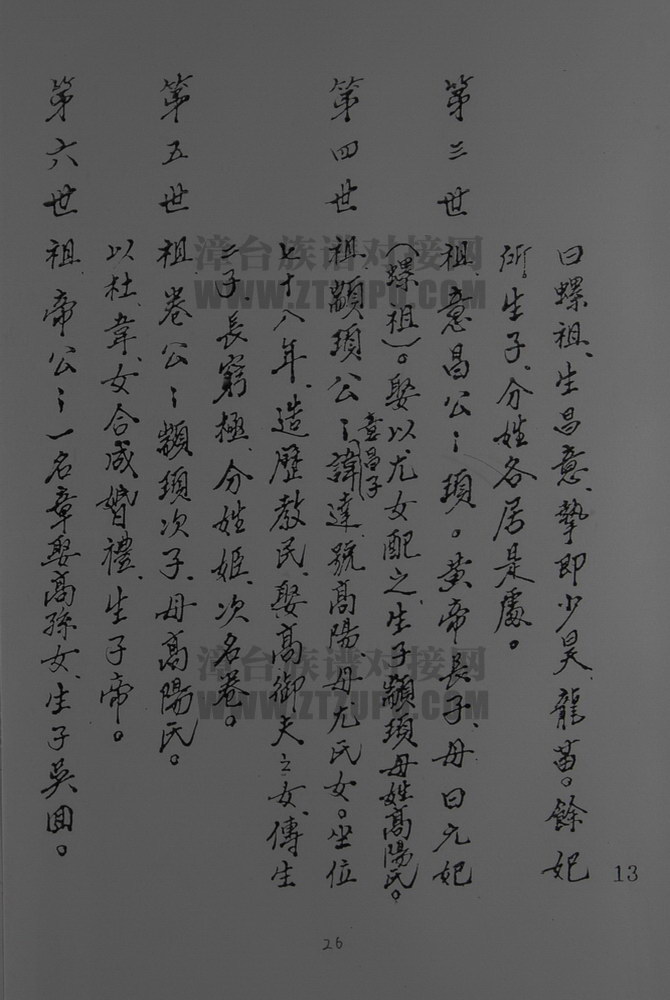 曰螺祖、生昌意、摯即少昊、龍苗。餘妃
所生子、分姓各居是處。
第三世 祖意昌公:頊。黃帝長子、母曰元妃
(螺祖)。娶以尤女配之、生子顓頊母姓高陽氏。
意昌子
第四世 祖顓頊公:諱達號高陽、母尤氏女。坐位
七十八年、造歷教民、娶高御夫之女、傳生
二子、長窮極、分姓姬、次名卷。
第五世 祖卷公:顓頊次子、母高陽氏。
以杜韋女合成婚禮、生子帝。
第六世 祖帝公:一名章娶高孫女、生子吳回。
13
26
漳台族谱对接网
WWW.ZTZUPU.COM
漳台族谱对接网
WWW.ZTZUPU.COM